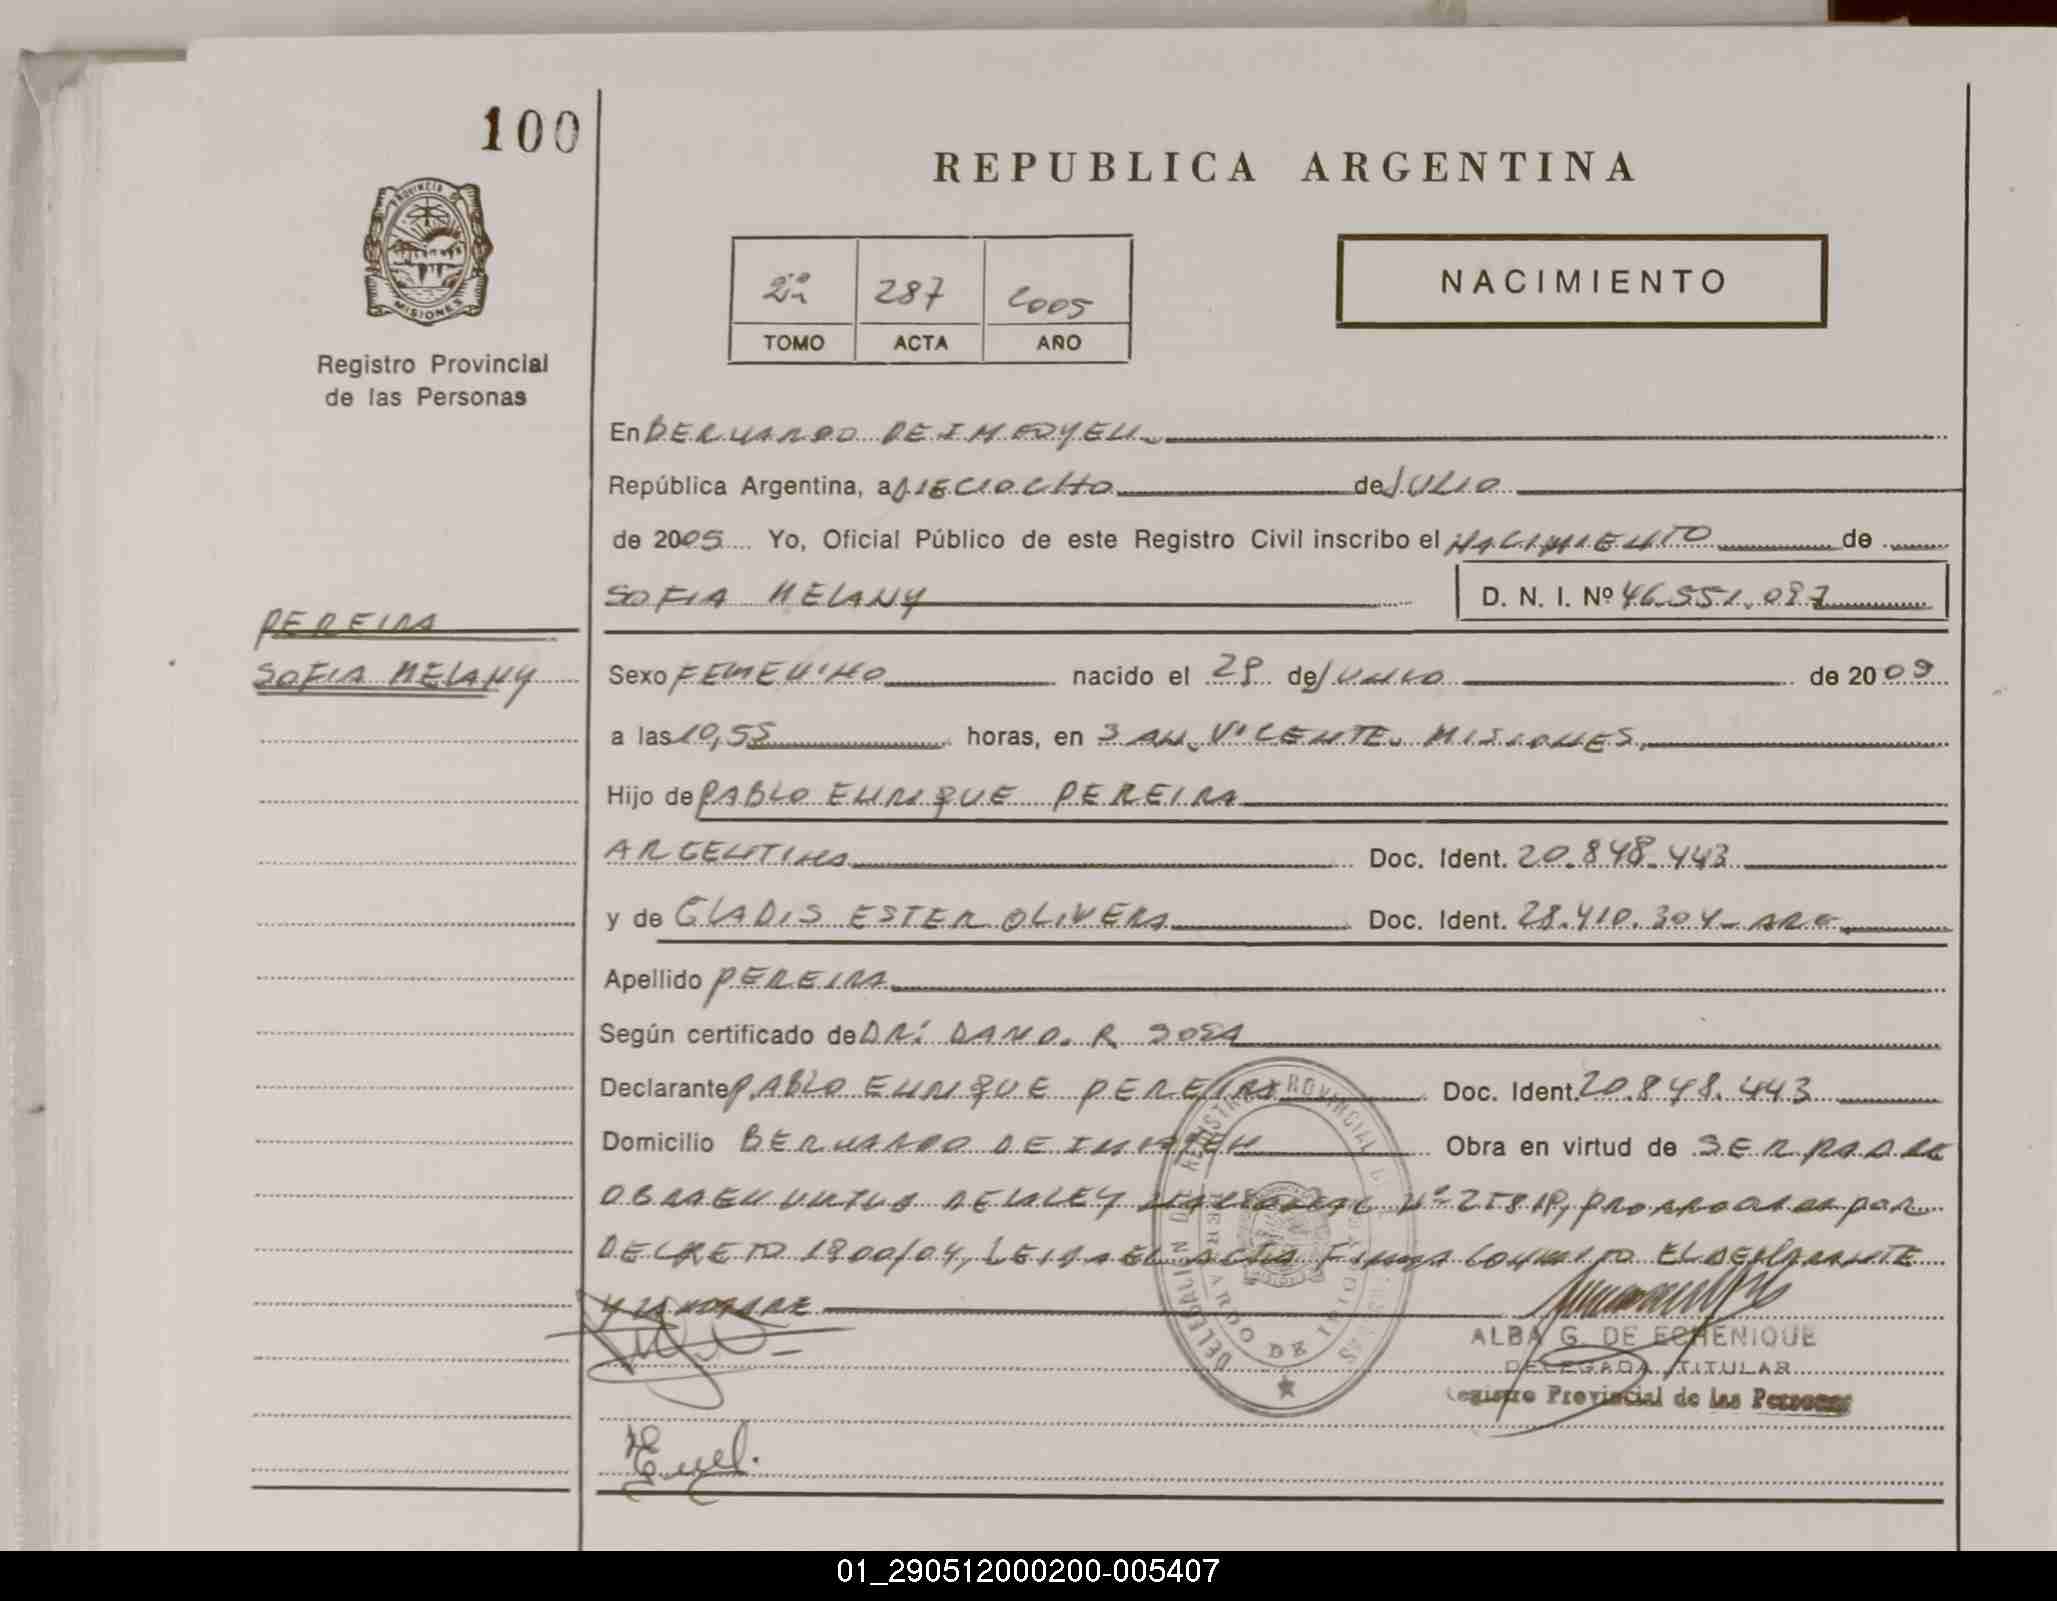 100
REPUBLICA ARGENTINA
PROVINCIA DE
MISIONES
Registro Provincial
de las Personas
NACIMIENTO
2º 287 2005
TOMO ACTA AÑO
En BERNARDO DE IRIGOYEN
República Argentina, a DIECIOCHO de JULIO
de 2005 Yo, Oficial Público de este Registro Civil inscribo el NACIMIENTO de
SOFIA MELANY D. N. I. Nº 46.551.097
PEREIRA
SOFIA MELANY
Sexo FEMENINO nacido el 29 de JUNIO de 20
a las 10,55 horas, en SAN VICENTE. MISIONES.
Hijo de PABLO ENRIQUE PEREIRA
ARGENTINA Doc. Ident. 20.848.443
y de GLADIS ESTER OLIVERA Doc. Ident. 28.410.304- ARG.
Apellido PEREIRA
Según certificado de DR. R. SOSA
Declarante PABLO ENRIQUE PEREIRA Doc. Ident. 20.848.443
Domicilio BERNARDO DE IRIGOYEN Obra en virtud de SER PADRE
OBRA EN VIRTUD DE LA LEY NACIONAL Nº 25819, PRORROGADA POR
DECRETO 1800/04, LEIDA EL ACTA FIRMA CONMIGO EL DECLARANTE
Y LA MADRE
DELEGACION DEL REGISTRO PROVINCIAL DE LAS PERSONAS
BERNARDO DE IRIGOYEN
ALBA G. DE ECHENIQUE
DELEGADA TITULAR
Registro Provincial de las Personas
01_290512000200-005407